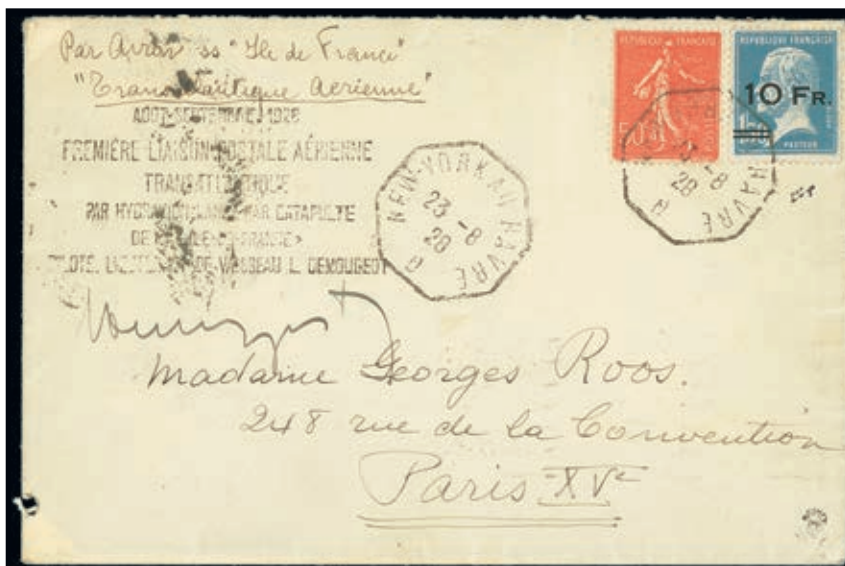 Par Avion ss "Ile de France"
"Transatlantique Aérienne"
AOUT-SEPTEMBRE 1928
PREMIÈRE LIAISON POSTALE AÉRIENNE
TRANSATLANTIQUE
PAR HYDRAVION LANCÉ PAR CATAPULTE
DE L'"ILE-DE-FRANCE"
PILOTE, LIEUTENANT DE VAISSEAU L. DEMOUGEOT
REPUBLIQUE FRANÇAISE
50
REPUBLIQUE FRANÇAISE
10 FR.
1,50
PASTEUR
NEW-YORK AU HAVRE
23 -8
28
HAVRE
23 -8
28
Madame Georges Roos.
248 rue de la Convention
Paris XVe